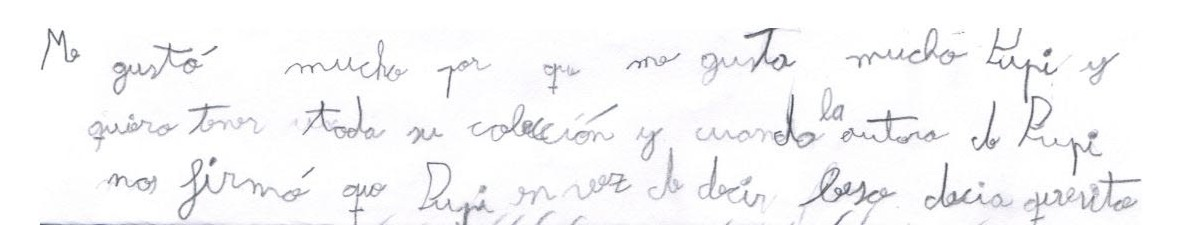 Me gustó mucho por que me gusta mucho Pupi y
quiero tener toda su colección y cuando la autora de Pupi
nos firmó que Pupi en vez de decir beso decia quesito